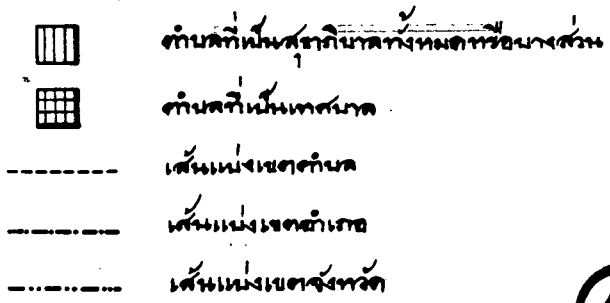 ตำบลที่เป็นสุขาภิบาลทั้งหมดหรือบางส่วน
ตำบลที่เป็นเทศบาล
เส้นแบ่งเขตตำบล
เส้นแบ่งเขตอำเภอ
เส้นแบ่งเขตจังหวัด